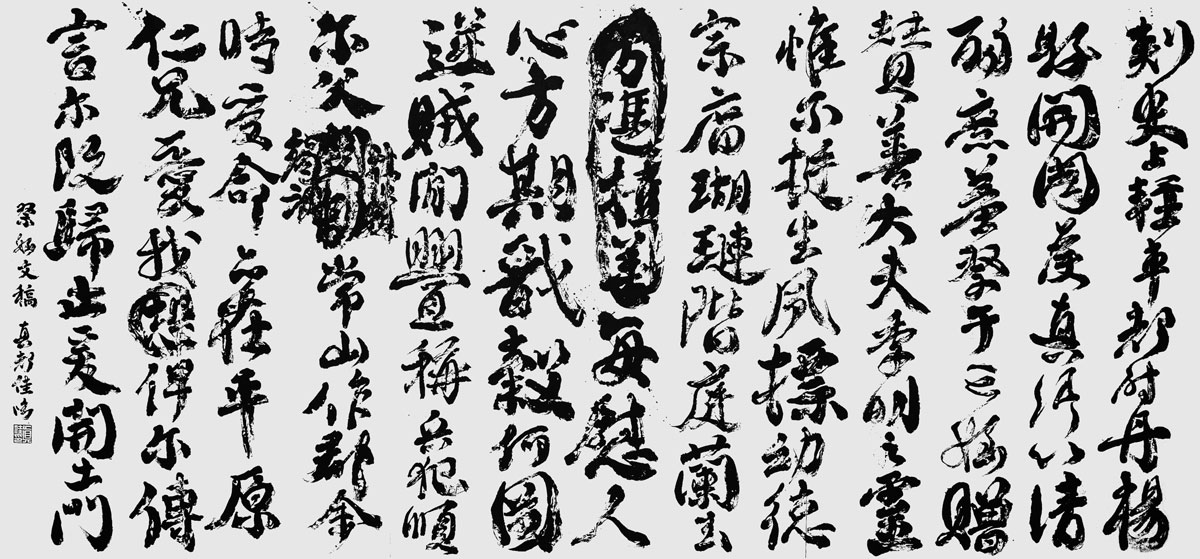 刺史上輕車都尉丹楊
縣開國侯真卿以清
酌庶羞祭于亡姪贈
贊善大夫季明之靈
惟爾挺生夙標幼德
宗廟瑚璉階庭蘭玉
方憑積善每慰人
心方期戩穀何圖
逆賊閒釁稱兵犯順
爾父竭誠常山作郡余
時受命亦在平原
仁兄愛我恐俾爾傳
言爾既歸止爰開土門
祭姪文稿